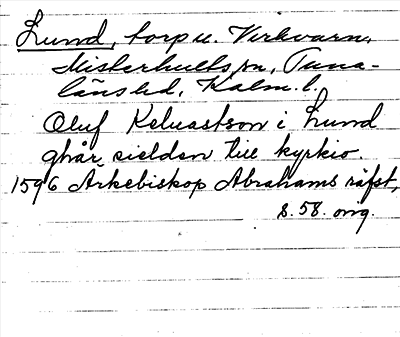 Lund, torp u. Virkvarn,
Misterhults sn, Tuna-
läns hd, Kalm. l.
Oluf Keluastson i Lund
ghår sielden till kyrkio.
1596 Ärkebiskop Abrahams räfst,
s. 58. orig.